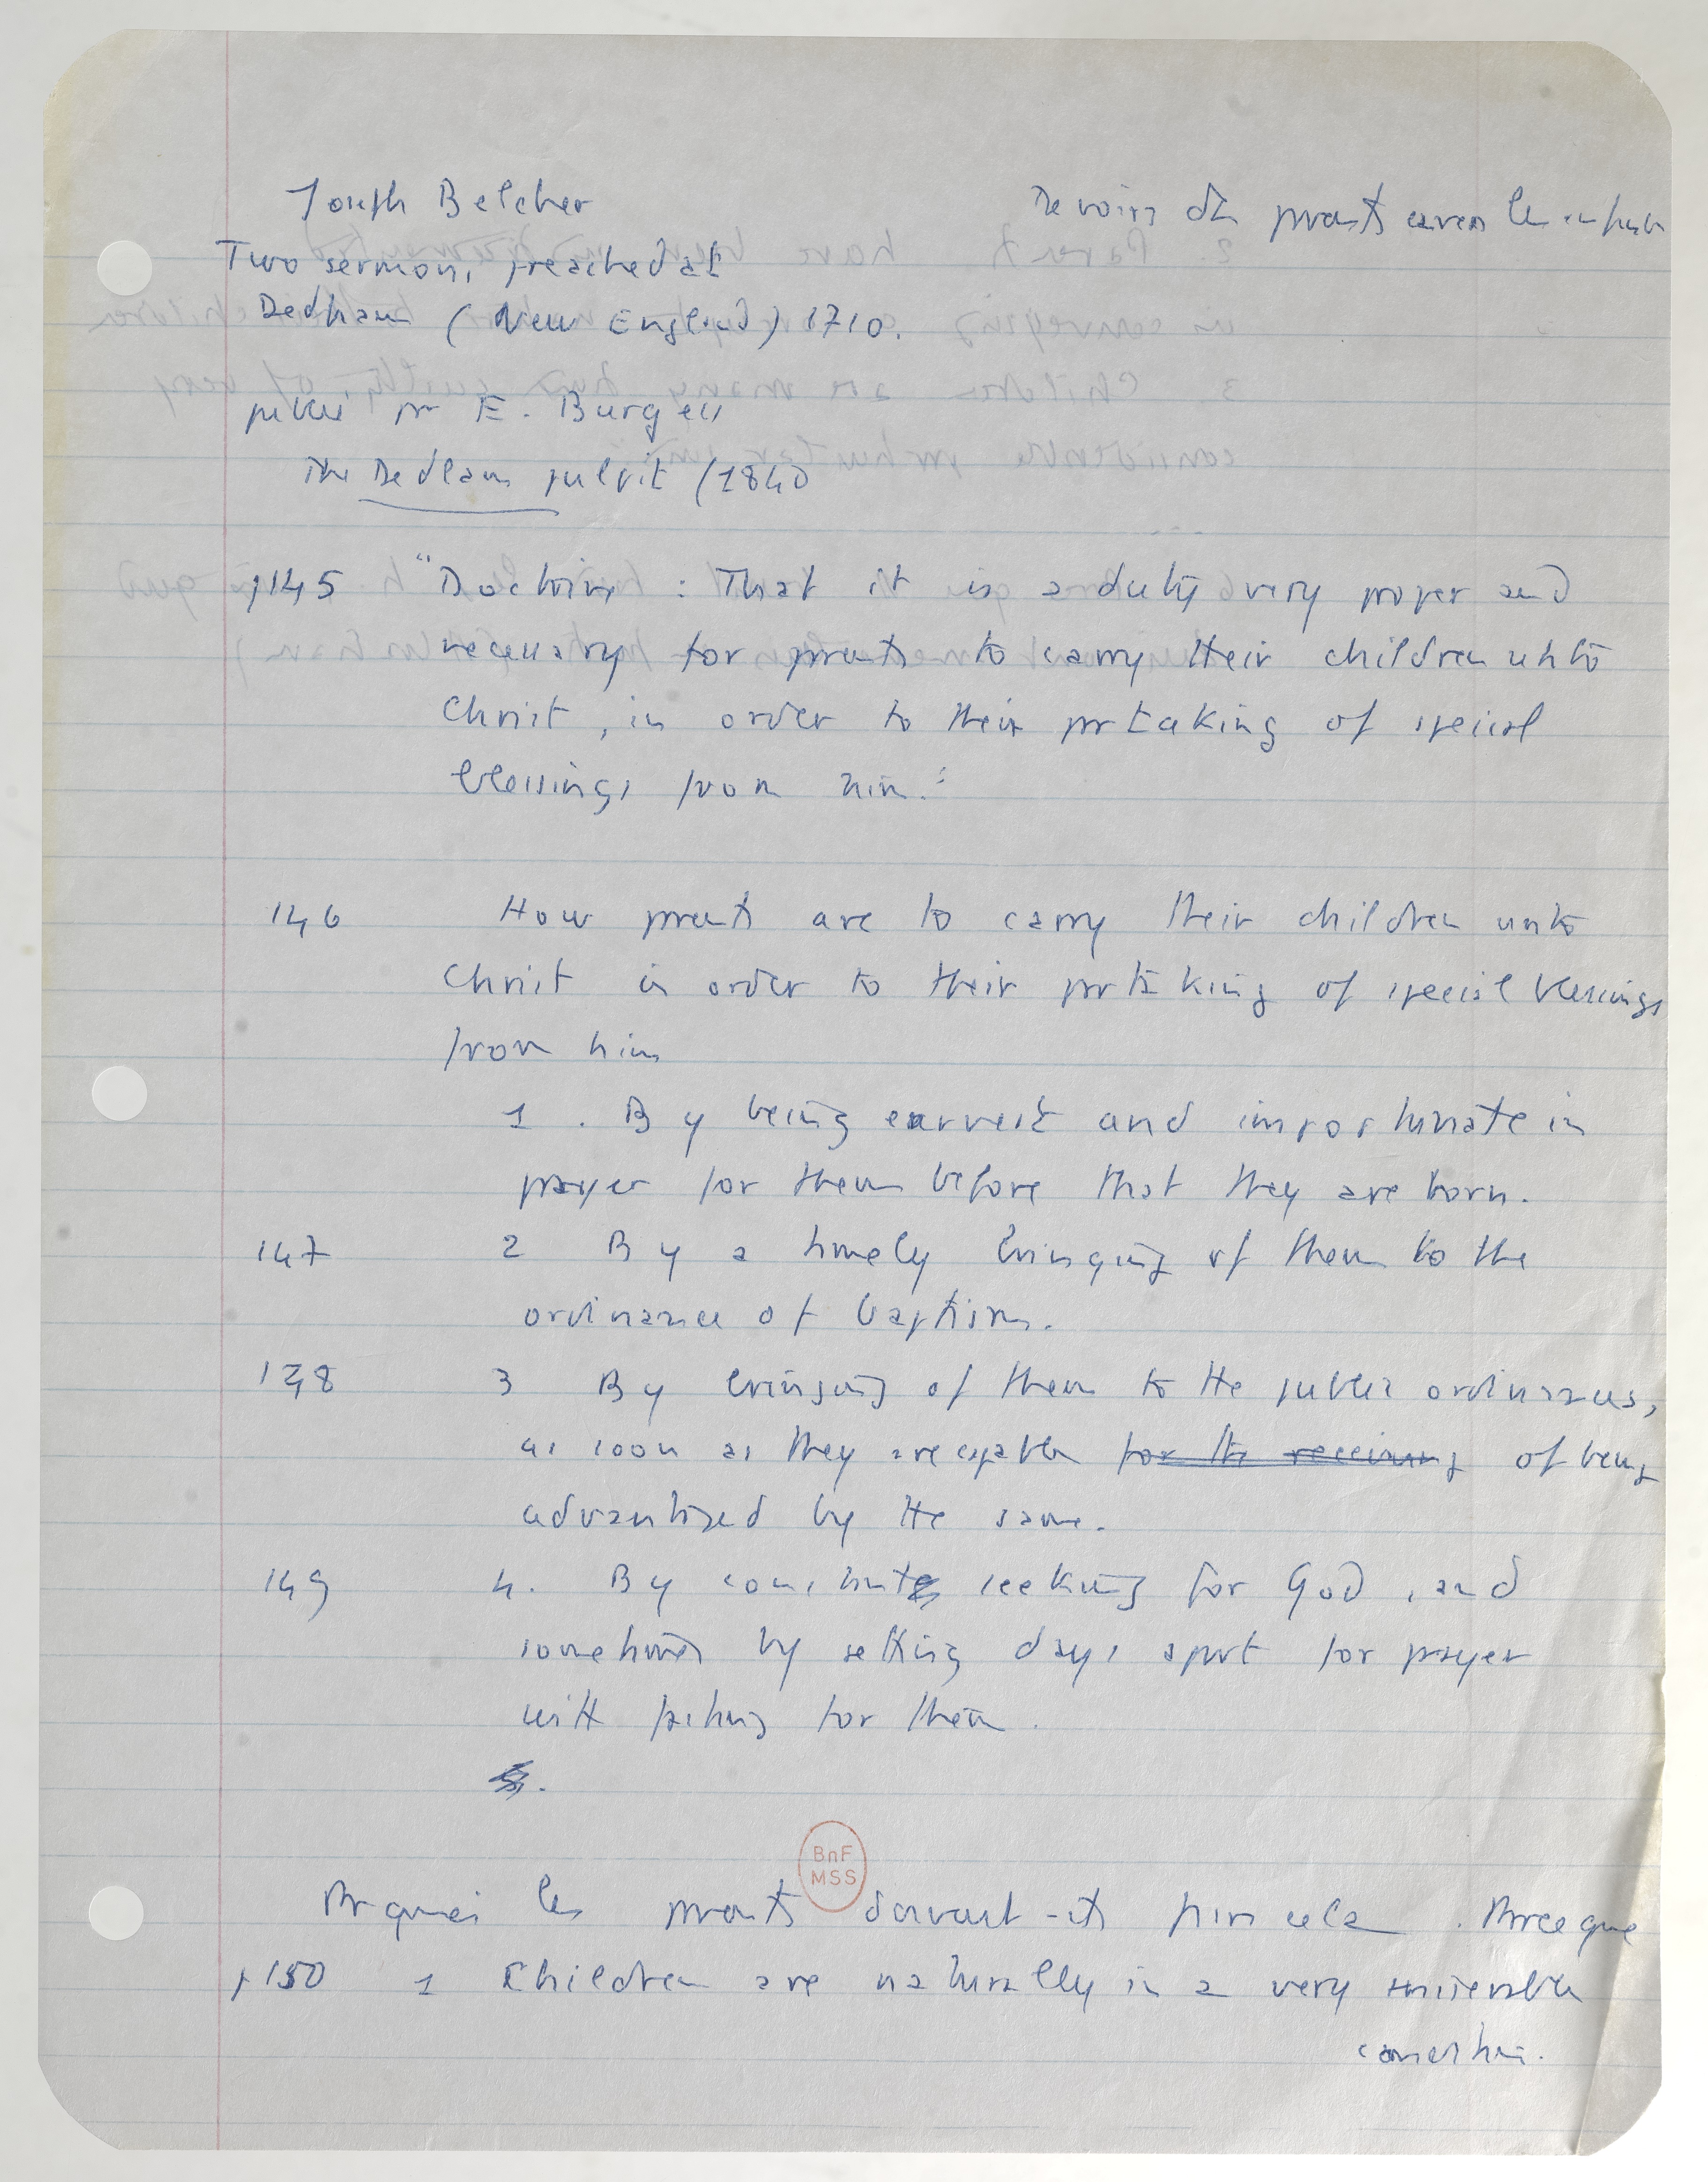 Joseph Belcher
Devoirs des parents envers les enfants
Two sermons, preached at
Dedham (New England) 1710.
publié par E. Burgess
The Dedham pulpit (1840
p145 "Doctrine : That it is a duty very proper and
necessary for parents to carry their children unto
Christ, in order to their partaking of special
blessings from him."
146 How parents are to carry their children unto
Christ in order to their partaking of special blessings
from him
1. By being earnest and importunate in
prayer for them before that they are born.
147 2 By a timely bringing of them to the
ordinance of baptism.
148 3 By bringing of them to the public ordinances,
as soon as they are capable for the receiving of being
advantaged by the same.
149 4. By constant seeking for God, and
sometimes by setting days apart for prayer
with fasting for them.
BnF
MSS
Pourquoi les parents doivent-ils faire cela. Parce que
p150 1 Children are naturally in a very miserable
condition.